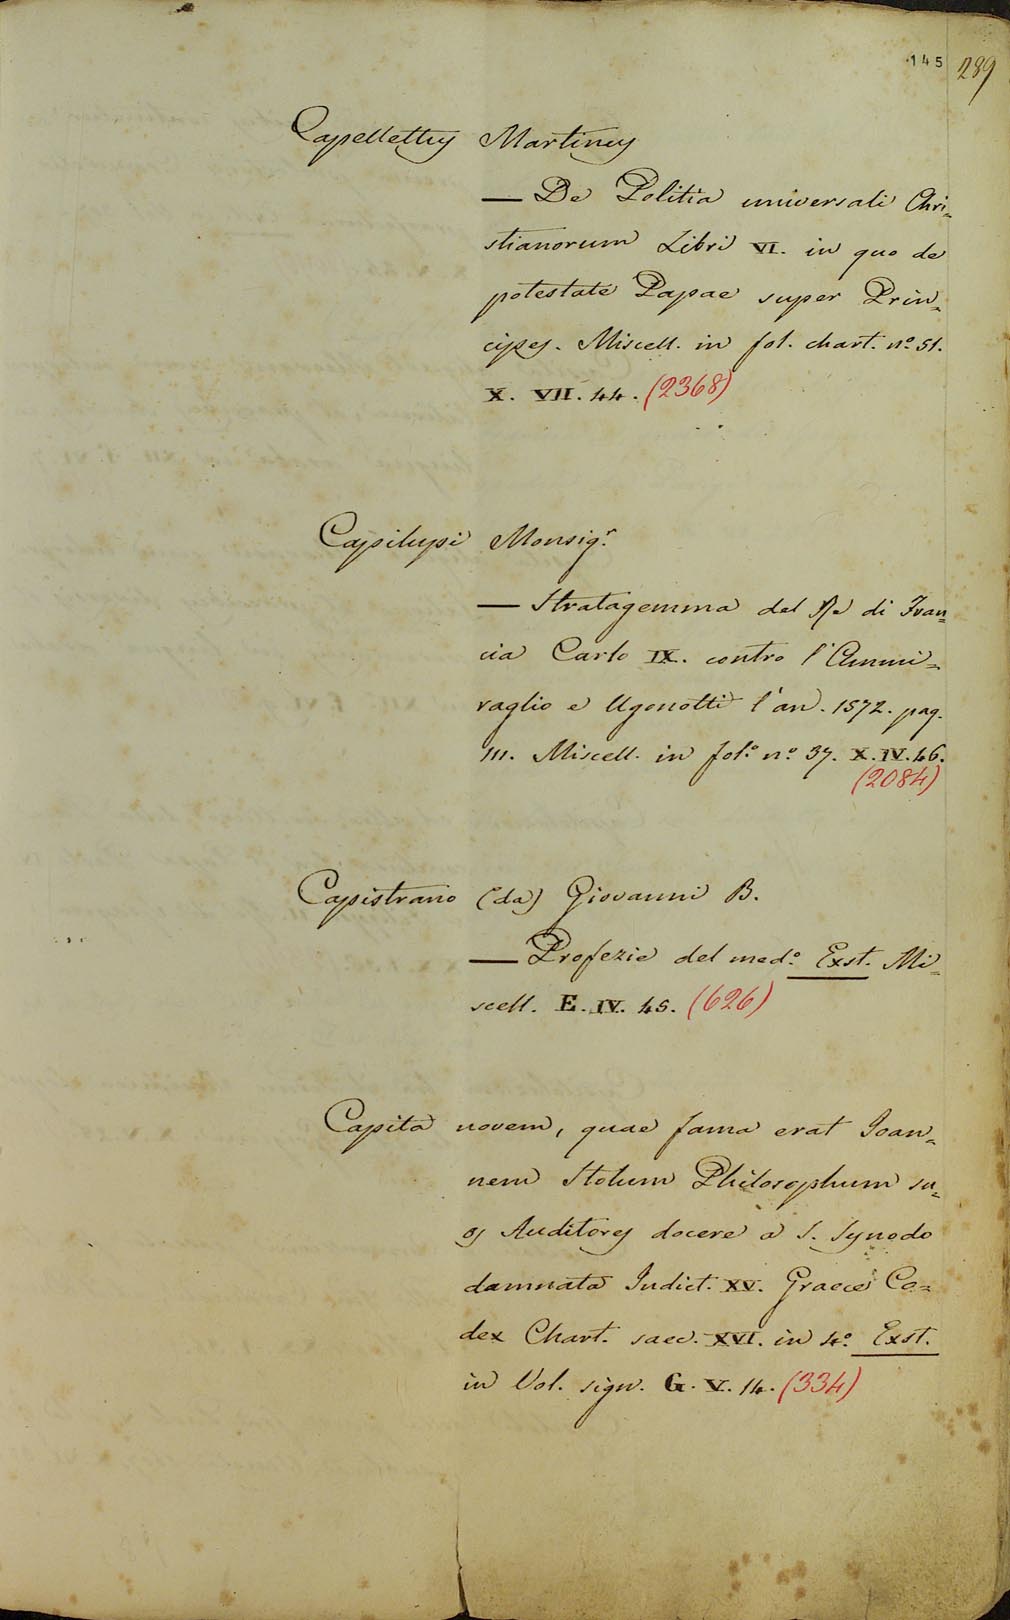 145 289
Capellettus Martinus
— De Politia universali Chri=
stianorum Libri VI. in quo de
potestate Papae super Prin=
cipes. Miscell. in fol. chart. nº. 51.
X. VII. 44. (2368)
Capilupi Monsigr.
— Stratagemma del Re di Fran=
cia Carlo IX. contro l'Ammi=
raglio e Ugonotti l'an. 1572. pag.
111. Miscell. in folº. nº. 37. X. IV. 46.
(2084)
Capistrano (da) Giovanni B.
— Profezie del medº. Exst. Mi=
scell. E. IV. 45. (626)
Capita novem, quae fama erat Ioan=
nem Stolum Philosophum su=
os Auditores docere a S. Synodo
damnata Indict. XV. Graece Co=
dex Chart. saec. XVI. in 4º. Exst.
in Vol. sign. G. V. 14. (334)